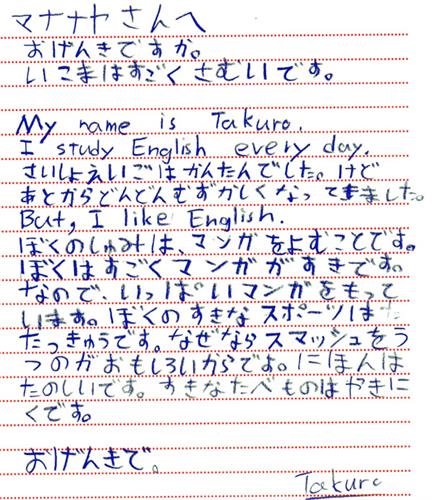 マナナヤさんへ
おげんきですか。
いこまはすごくさむいです。
My name is Takuro.
I study English every day.
さいしょえいごはかんたんでした。けど
あとからどんどんむずかしくなってきました。
But, I like English.
ぼくのしゅみは、マンガをよむことです。
ぼくはすごくマンガがすきです。
なので、いっぱいマンガをもって
います。ぼくのすきなスポーツは
たっきゅうです。なぜならスマッシュをう
つのがおもしろいからでよ。にほんは
たのしいです。すきなたべものはやきに
くです。
おげんきで。
Takuro